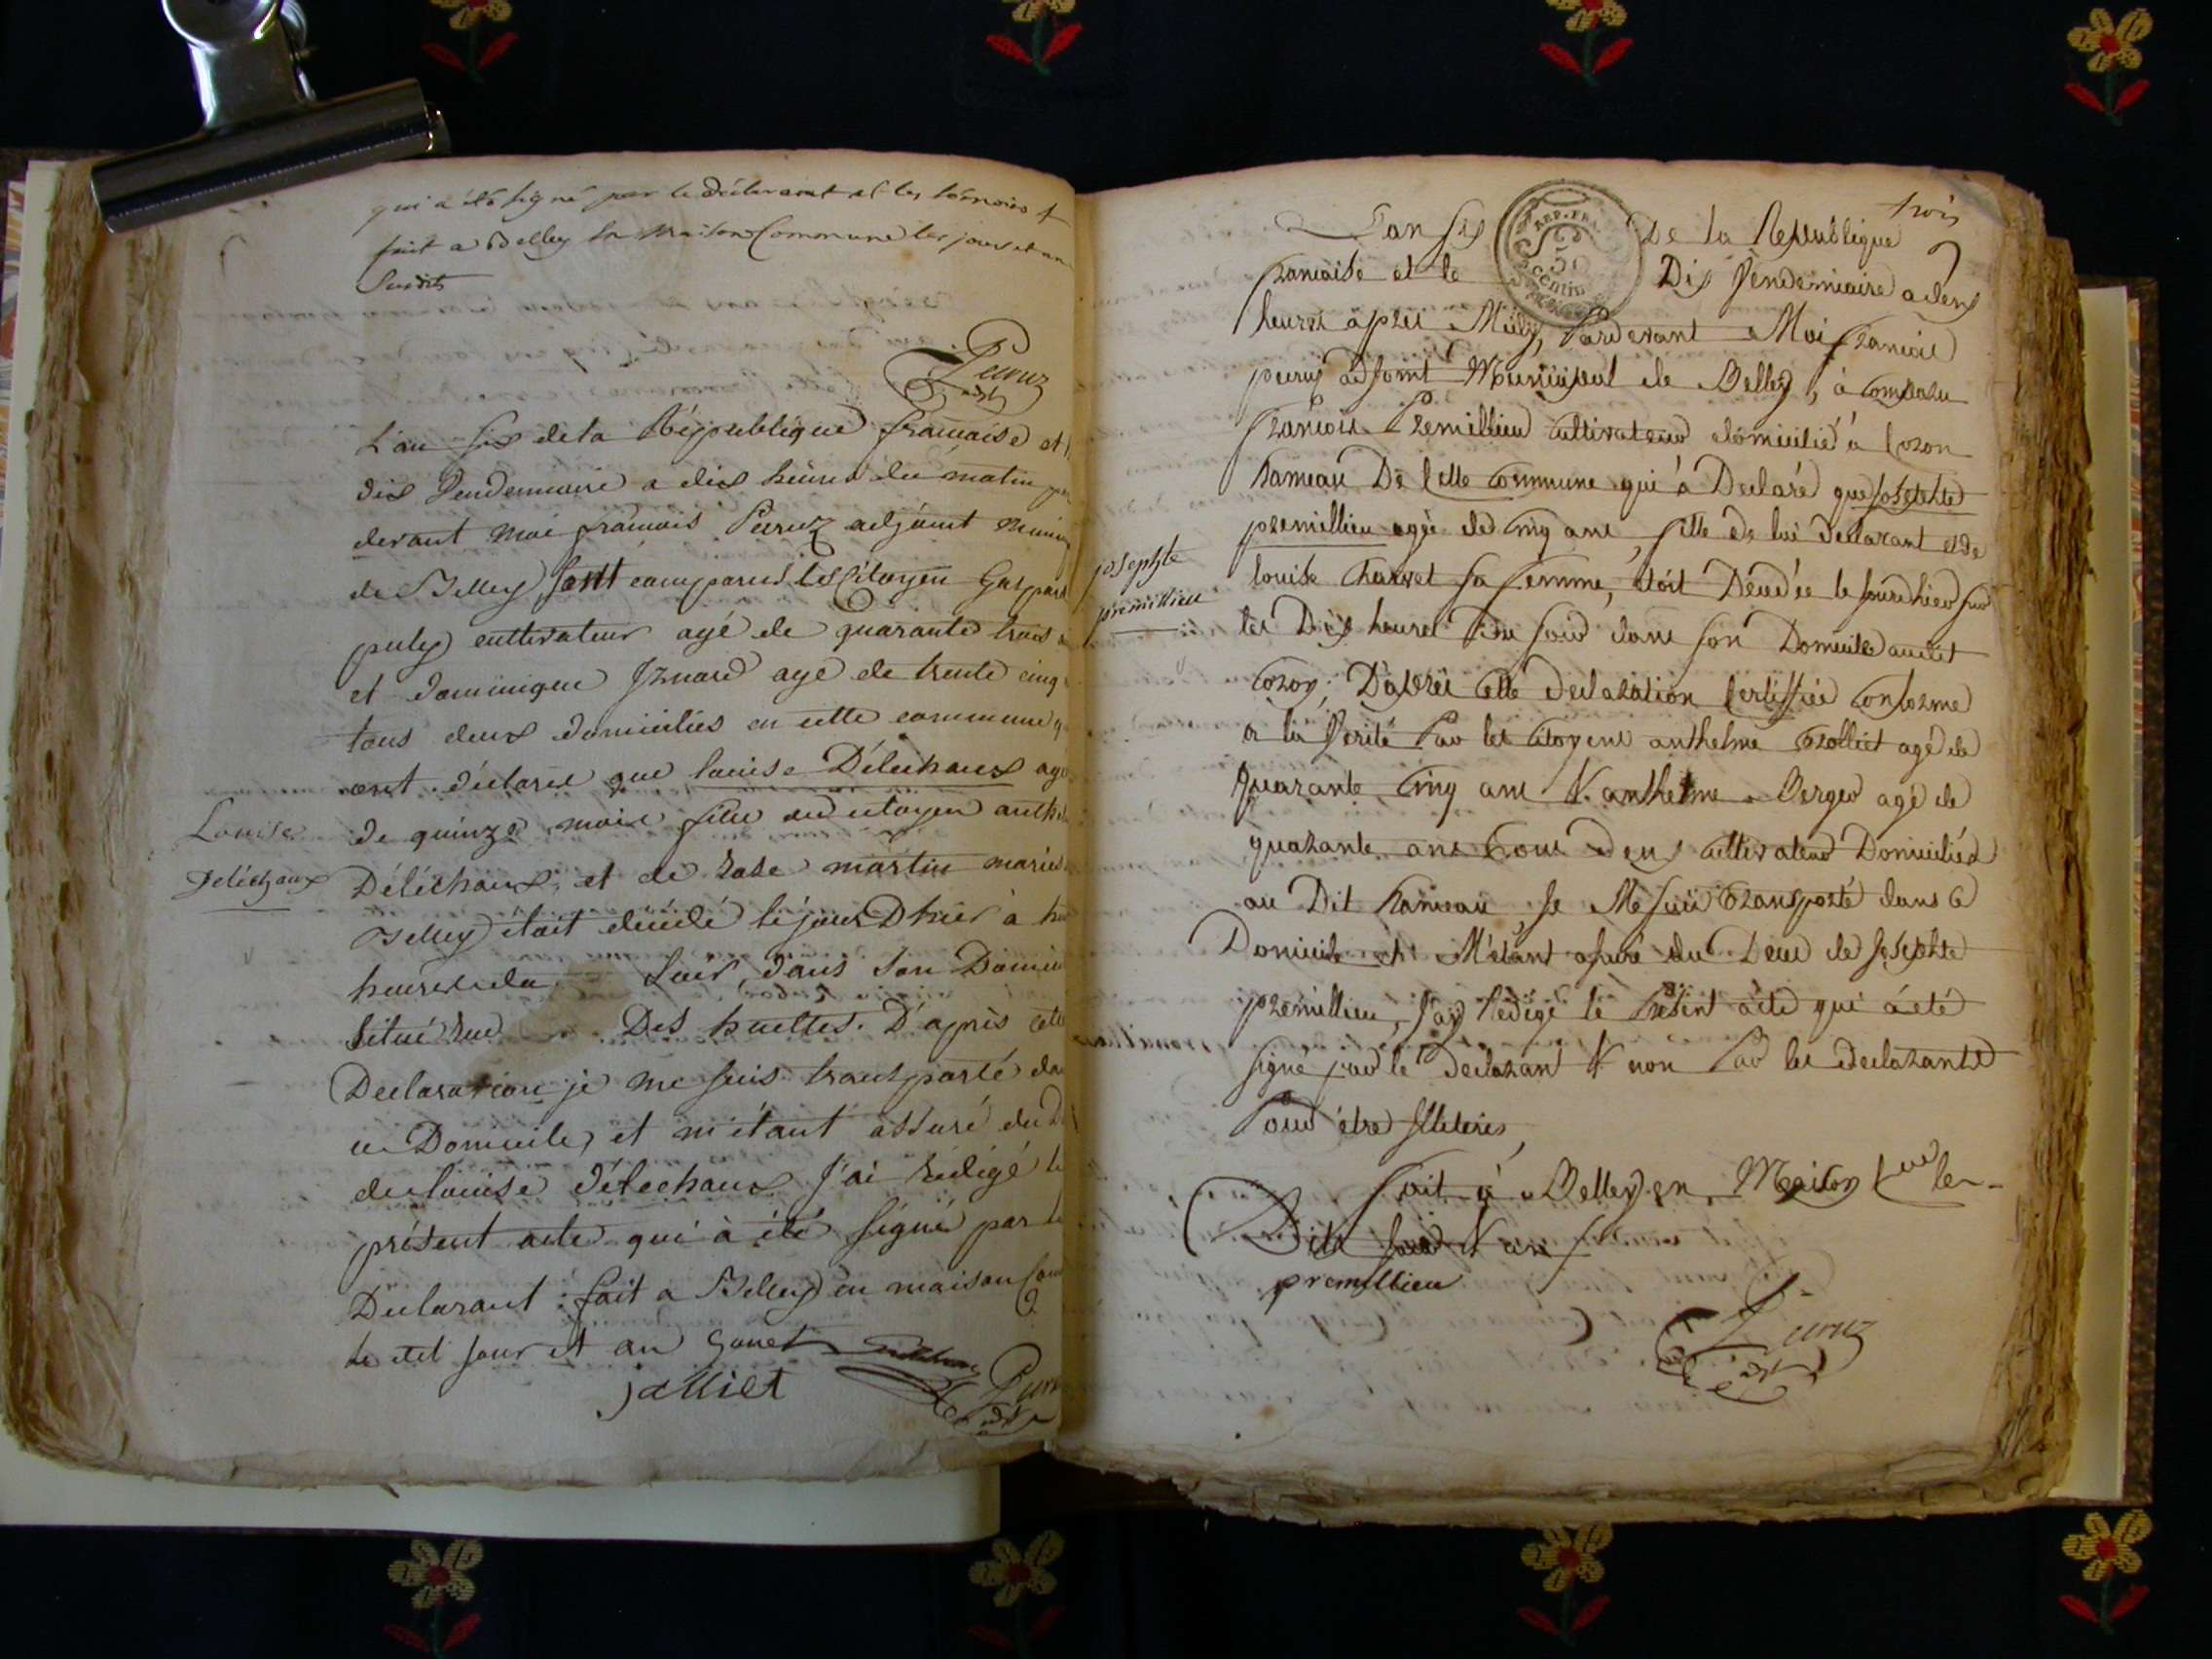 qui a été signé par le déclarant et les témoins
fait a Belley en maison Commune les jours et an
Susdits
Peruz
adjt
L'an six de la République française et l
dix Vendemiaire a dix heures du matin par
devant moi françois Peruz adjoint munici
de Belley sont comparus les Citoyen Gaspard
puley cultivateur agé de quarante trois a
et dominique Izuard agé de trente cinq
tous deux domiciliés en cette commune q
ont déclaré que louise Déléchaux agé
Louise
Deléchaux
de quinze mois fille du citoyen anthe
Déléchaux, et de rose martin mariés
Belley était décédé le jour D'hier à hu
heures du Soir, dans son Domici
situé rue Des huttes. D'après cette
Declaration je me suis transporté da
ce Domicile, et m'étant assuré du D
de louise Délechaux J'ai rédigé le
présent acte qui à été signé par le
Declarant : fait a Belley en maison Com
les dit jour et an
jalliet
Peruz
adjt
trois
L'an six De la Republique
REP. FRA.
50
CENTIM
francaise et le Dix Vendemiaire a deux
heures après Midy, Pardevant Moi francois
peruz adjoint Municipal de Belley, à comparu
francois Premillieu cultivateur domicilié à Coron
hameau De Cette commune qui à Declaré que Josephte
premillieu agée de cinq ans, fille de lui declarant et de
josephte
premillieu
louise Charvet sa femme, étoit Décédée le jourdhier sur
les Dix heures Du soir dans son Domicile audit
Coron; D'après cette declaration certiffiée conforme
a la Verité Par les citoyens anthelme Rolliet agé de
quarante cinq ans & anthelme Berger agé de
quarante ans tous deux cultivateurs Domiciliés
au Dit hameau, Je Me suis transporté dans ce
Domicile et M'étant assuré du Deces de Josephte
premillieu, J'ay Redigé le Présent acte qui à été
signé par le Declarant & non Par les declarants
Pour être Illeterés,
fait à Belley en Maison Cne les
Dits jour & an
premillieu
Peruz
adjt